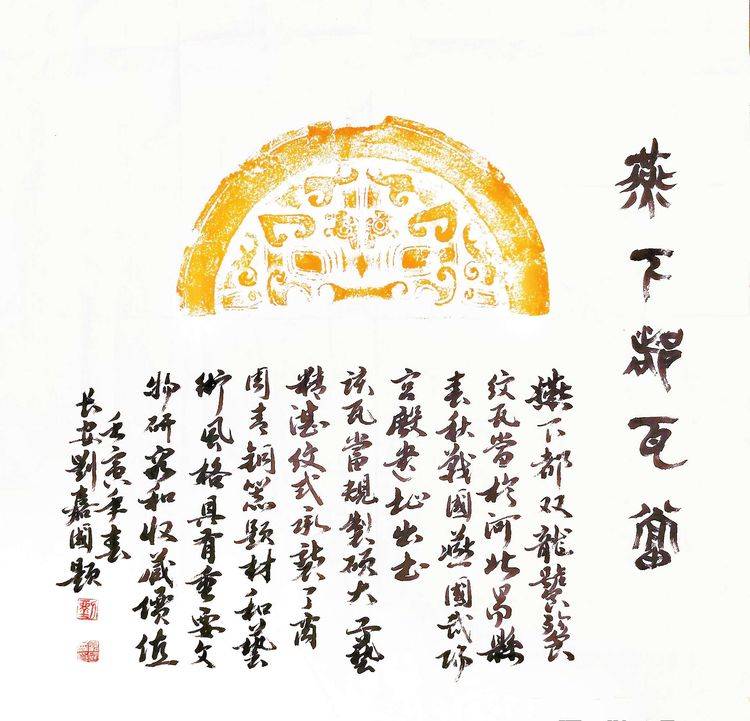 燕下都瓦當
燕下都双龍饕餮
纹瓦當於河北易縣
春秋戰國燕國武陽
宫殿遗址出土
该瓦當規製碩大工藝
精湛纹式承襲了商
周青銅器题材和藝
術風格具有重要文
物研究和收藏價值
壬寅年春
长安劉嘉國题